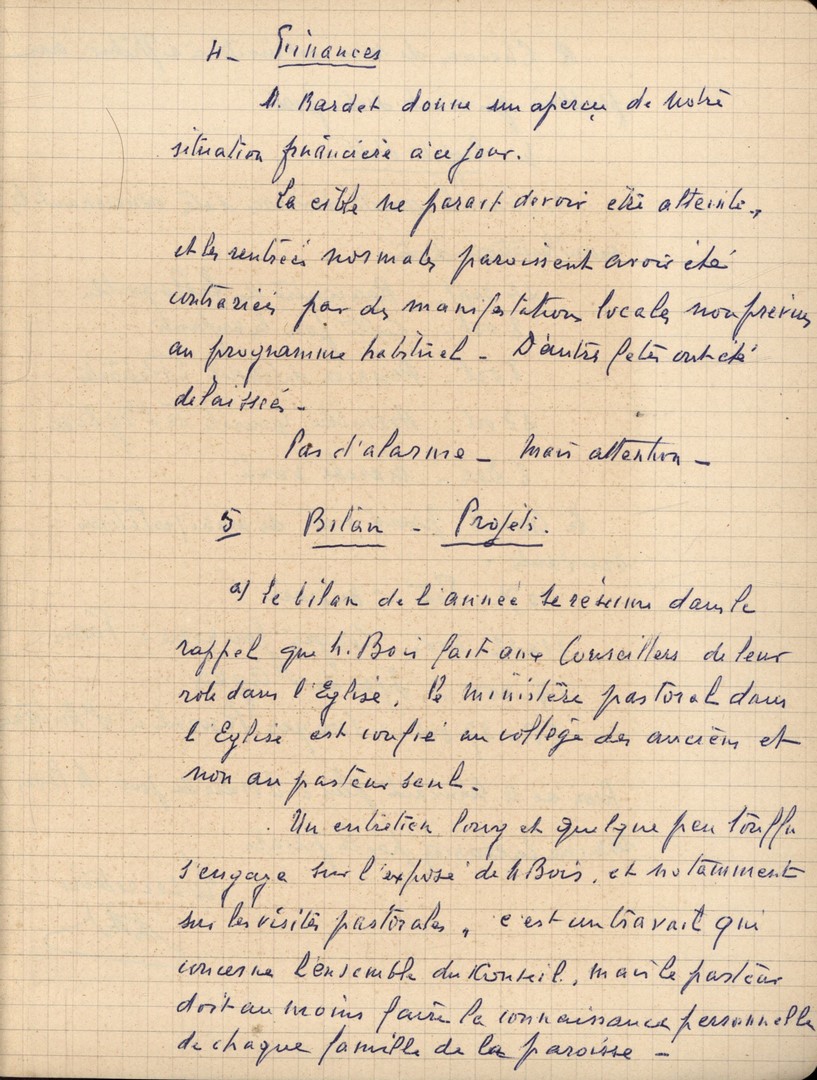 4- Finances
M. Bardet donne un aperçu de notre
situation financière à ce jour.
La cible ne parait devoir être atteinte,
et les rentrées normales paroissent avoir été
contrariées par des manifestations locales non prévues
au programme habituel - D'autres fêtes ont été
délaissées -
Pas d'alarme - Mais attention -
5 Bilan - Projets.
a) Le bilan de l'année se résume dans le
rappel que M. Bois fait aux Conseillers de leur
role dans l'Eglise. Le ministère pastoral dans
l'Eglise est confié au collège des anciens et
non au pasteur seul.
Un entretien long et quelque peu touffu
s'engage sur l'exposé de M Bois, et notamment
sur les visites pastorales, c'est un travail qui
concerne l'ensemble du Conseil, mais le pasteur
doit au moins faire la connaissance personnelle
de chaque famille de la paroisse -